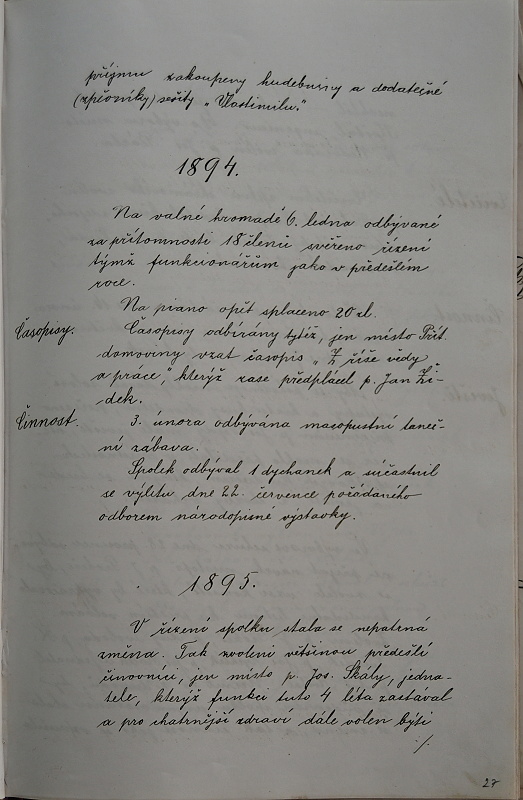 příjmu zakoupeny hudebniny a dodatečné
(zpěvníky) sešity „Vlastimilu."
1894.
Na valné hromadě 6. ledna odbývané
za přítomnosti 18 členů svěřeno řízení
týmž funkcionářům jako v předešlém
roce.
Na piano opět splaceno 20 zl.
Časopisy.
Časopisy odbírány tytéž, jen místo Přít.
domoviny vzat časopis „Z říše vědy
a práce", kterýž zase předplácel p. Jan Ži-
dek.
Činnost.
3. února odbývána masopustní taneč-
ní zábava.
Spolek odbýval 1 dychanek a súčastnil
se výletu dne 22. července pořádaného
odborem národopisné výstavky.
1895.
V řízení spolku stala se nepatrná
změna. Tak zvoleni většinou předešlí
činovníci, jen místo p. Jos. Skály, jedna-
tele, kterýž funkci tuto 4 léta zastával
a pro chatrnější zdraví dále volen býti
./.
27